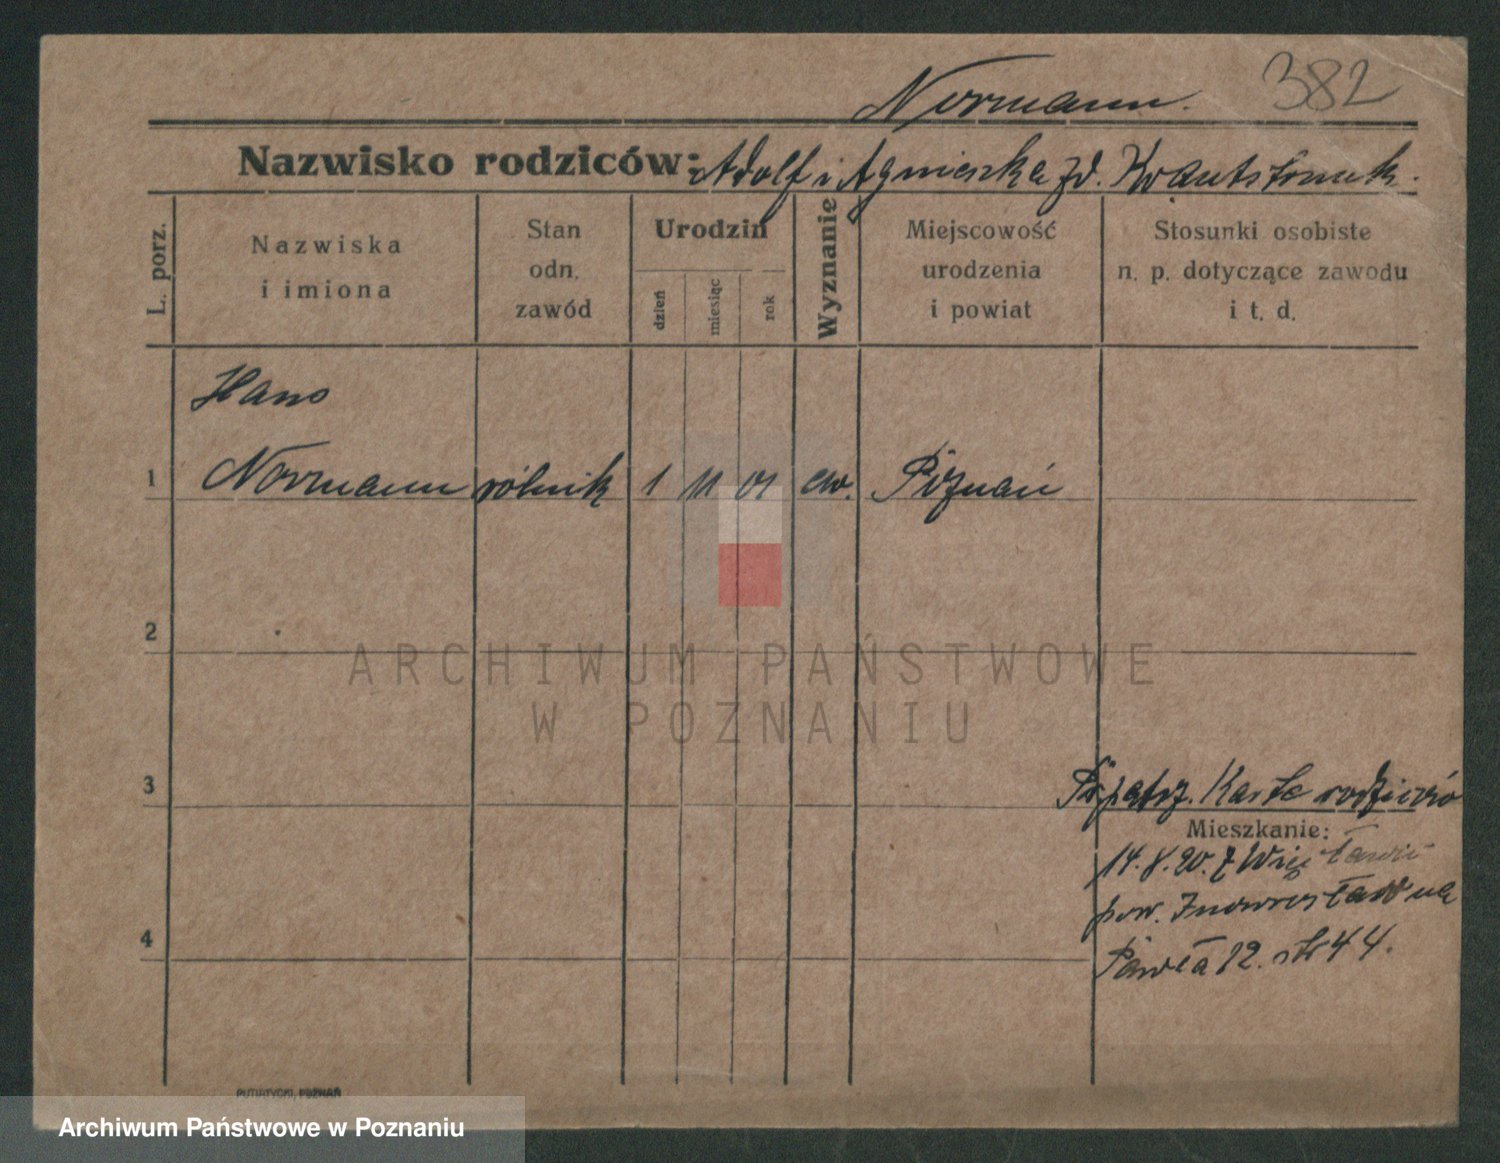 Normann.
382
Nazwisko rodziców: Adolf i Agnieszka zd.
L. porz.
Nazwiska
i imiona
Stan
odn.
zawód
Urodzin
dzień
miesiąc
rok
Wyznanie
Miejscowość
urodzenia
i powiat
Stosunki osobiste
n. p. dotyczące zawodu
i t. d.
Hans
1 Normann rólnik 1 11 01 ew. Poznań
2
ARCHIWUM PAŃSTWOWE
W POZNANIU
3
Karta rodziców
Mieszkanie:
14.8.20. z
pow.
4
Pawła 12. str 44.
PUTIATYCKI, POZNAŃ
Archiwum Państwowe w Poznaniu